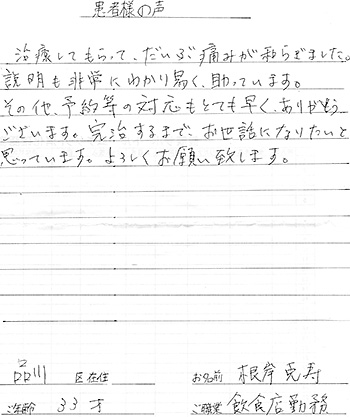 患者様の声
治療してもらって、だいぶ痛みが和らぎました。
説明も非常にわかり易く、助っています。
その他、予約等の対応もとても早く、ありがとう
ございます。完治するまで、お世話になりたいと
思っています。よろしくお願い致します。
品川 区在住 お名前 根岸克寿
ご年齢 33才 ご職業 飲食店勤務